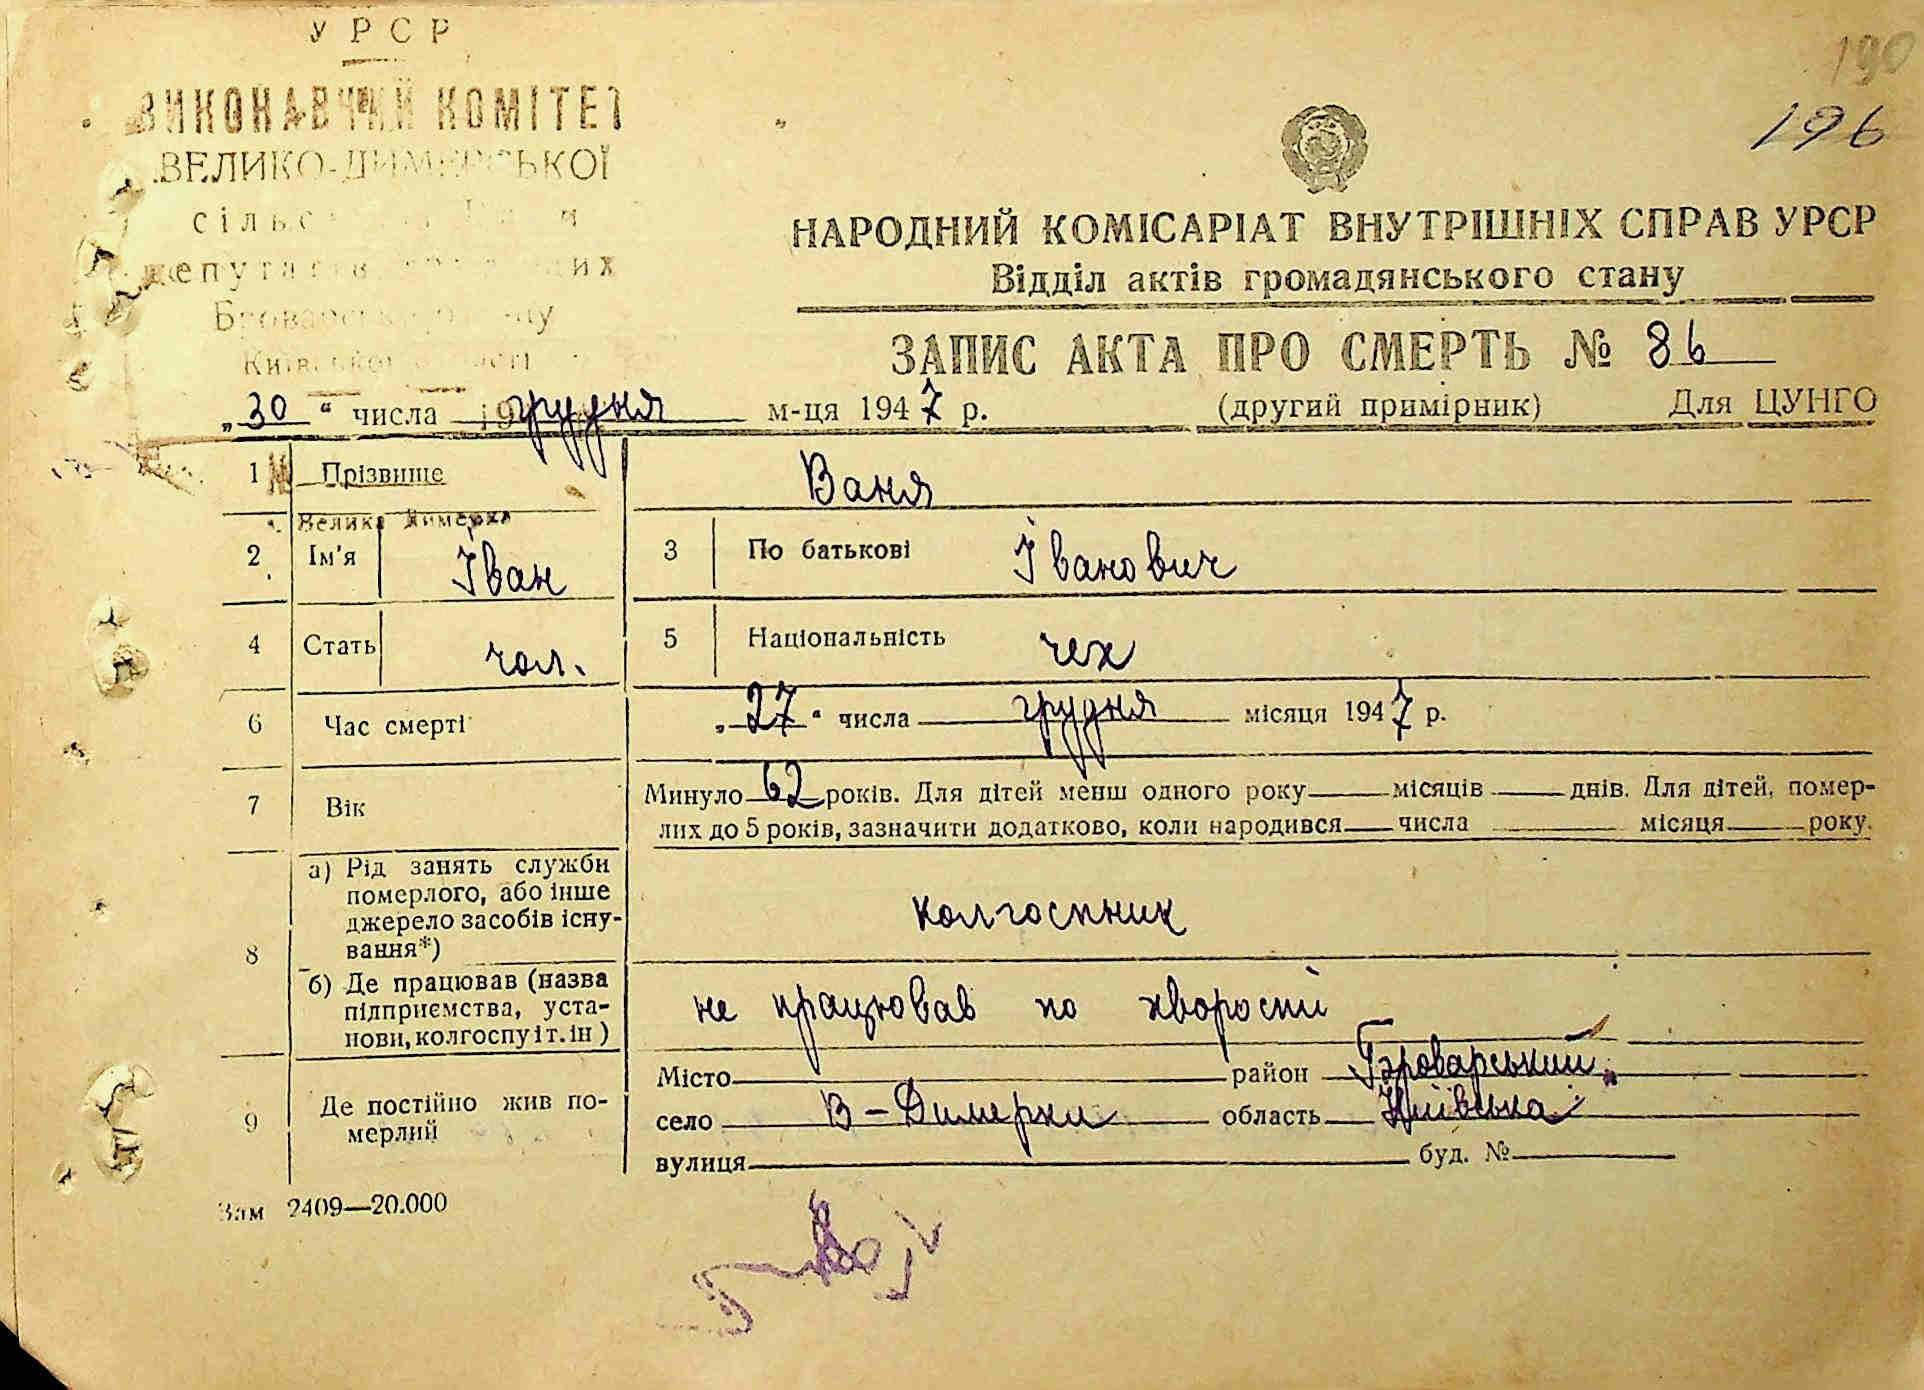 УРСР
ВИКОНАВЧИЙ КОМІТЕТ
ВЕЛИКО-ДИМЕРСЬКОЇ
депутатів
Броварського р-ну
Київської області
190
196
НАРОДНИЙ КОМІСАРІАТ ВНУТРІШНІХ СПРАВ УРСР
Відділ актів громадянського стану
ЗАПИС АКТА ПРО СМЕРТЬ № 86
„30“ числа грудня м-ця 1947 р. (другий примірник) Для ЦУНГО
1 Прізвище Ваня
Велика Димерка
2 Ім'я Іван 3 По батькові Іванович
4 Стать чол. 5 Національність чех
6 Час смерті „27“ числа грудня місяця 1947 р.
7 Вік Минуло 62 років. Для дітей менш одного року місяців днів. Для дітей, помер-
лих до 5 років, зазначити додатково, коли народився числа місяця року.
8 а) Рід занять служби
померлого, або інше
джерело засобів існу-
вання*) колгоспник
б) Де працював (назва
підприємства, уста-
нови, колгоспу і т. ін) не працював по хворости
9 Де постійно жив по-
мерлий
Місто район Броварський
село В-Димерки область Київська
вулиця буд. №
Зам 2409—20.000